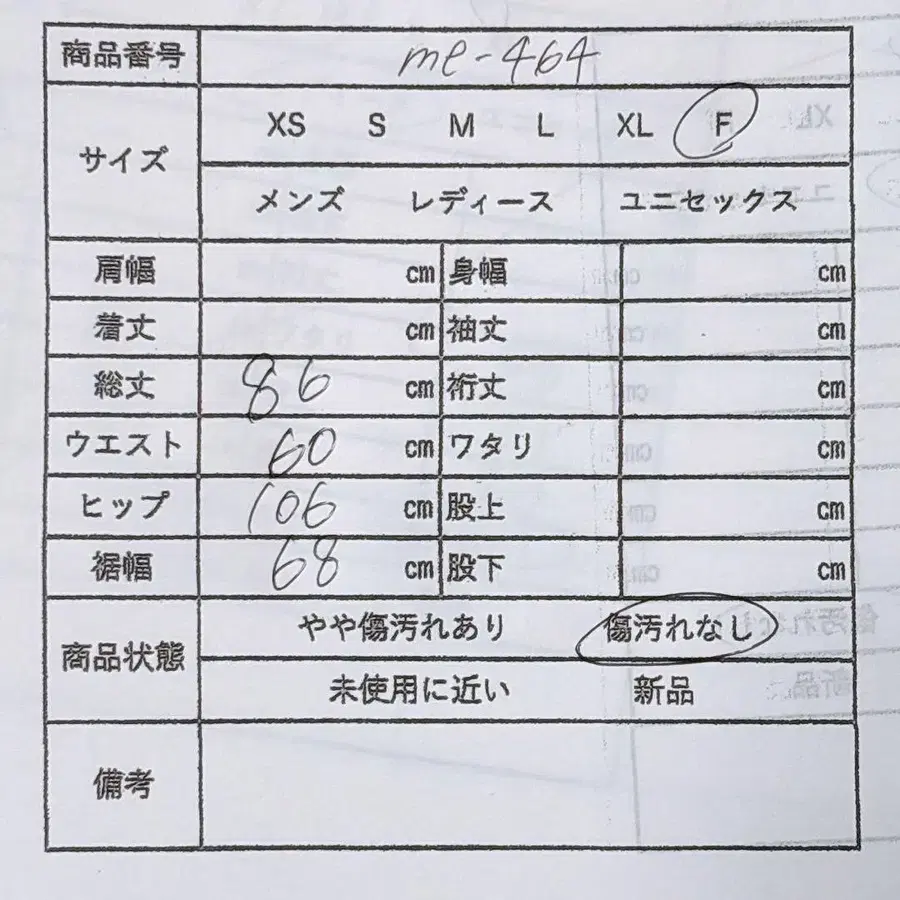 商品番号 me-464
サイズ XS S M L XL F
メンズ レディース ユニセックス
肩幅 cm 身幅 cm
着丈 cm 袖丈 cm
総丈 86 cm 裄丈 cm
ウエスト 60 cm ワタリ cm
ヒップ 106 cm 股上 cm
裾幅 68 cm 股下 cm
商品状態 やや傷汚れあり 傷汚れなし
未使用に近い 新品
備考